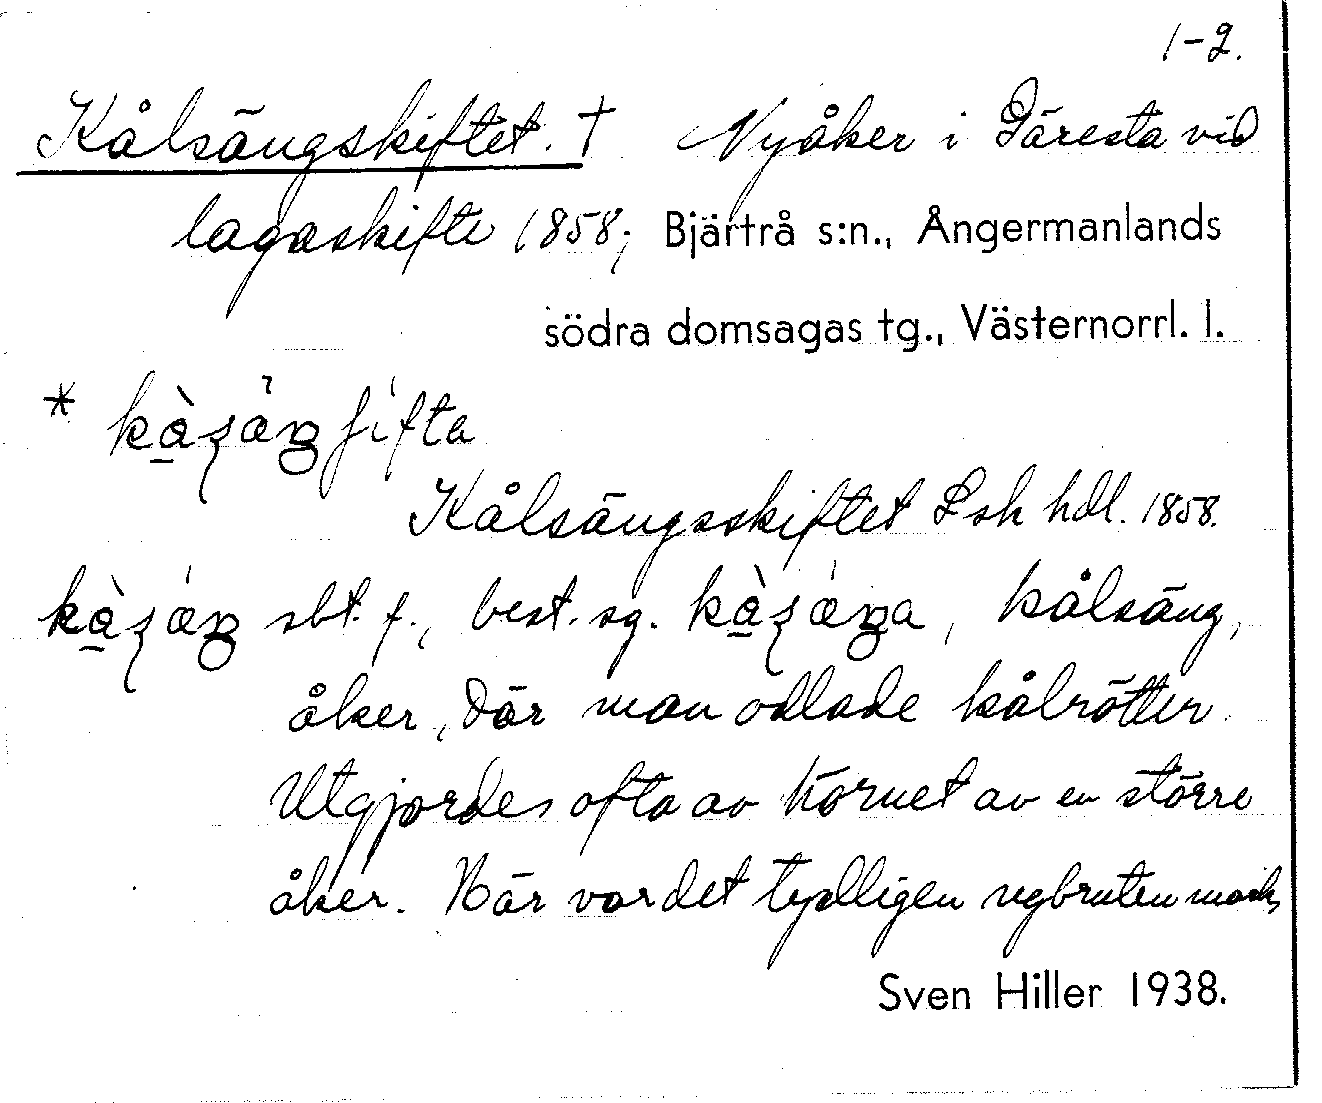 1-2.
Kålsängskiftet. † Nyåker i Päresta vid
lagaskifte 1858; Bjärtrå s:n., Ångermanlands
södra domsagas tg., Västernorrl. l.
Kålsängsskiftet Lsk hdl. 1858.
sbt. f., best. sg. kålsäng,
åker, där man odlade kålrötter.
Utgjordes ofta av hörnet av en större
åker. Här var det tydligen nybruten mark,
Sven Hiller 1938.